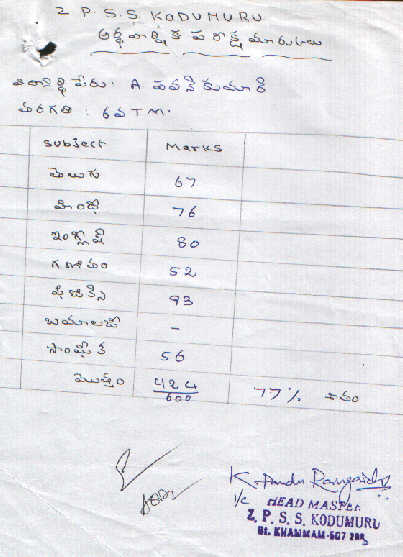 Z P. S. S KODUMURU
అర్ధవార్షిక పరీక్ష మార్కులు
విద్యార్థి పేరు: A పవన్ కుమార్
తరగతి : 6వ T M.
subject Marks
తెలుగు 67
హిందీ 76
ఇంగ్లీష్ 80
గణితం 52
ఫిజిక్స్ 93
బయాలజీ -
సాంఘీక 56
మొత్తం 424/600 77%
I/C
HEAD MASTER
Z. P. S. S. KODUMURU
Dt. KHAMMAM-507